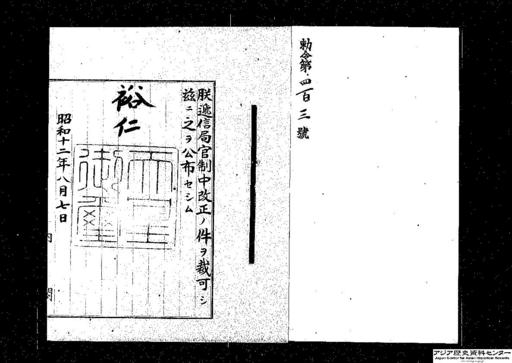 勅令第四百三號
朕遞信局官制中改正ノ件ヲ裁可シ
茲ニ之ヲ公布セシム
裕仁
天皇御璽
昭和十二年八月七日
内閣
アジア歴史資料センター
Japan Center for Asian Historical Records